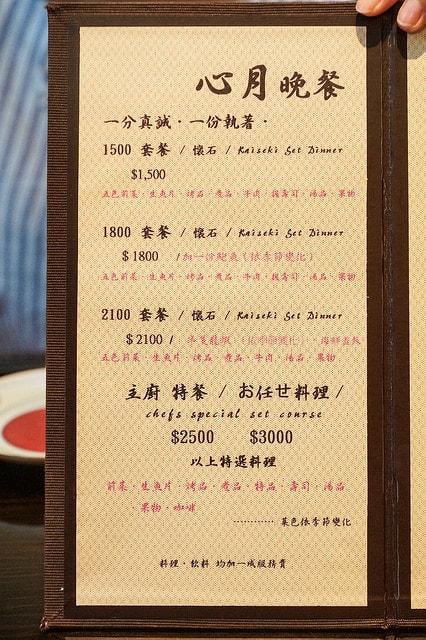 心月晚餐
一分真誠・一份執著・
1500 套餐 / 懷石 / Kaiseki Set Dinner
$1,500
五色前菜・生魚片・烤品・煮品・牛肉・握壽司・湯品・果物
1800 套餐 / 懷石 / Kaiseki Set Dinner
$ 1800 /加一份鮑魚(依季節變化)
五色前菜・生魚片・烤品・煮品・牛肉・握壽司・湯品・果物
2100 套餐 / 懷石 / Kaiseki Set Dinner
$ 2100 / 半隻龍蝦(依季節變化)・海鮮蓋飯
五色前菜・生魚片・烤品・煮品・牛肉・湯品・果物
主廚 特餐 / お任せ料理 /
chefs special set course
$2500 $3000
以上特選料理
前菜・生魚片・烤品・煮品・特品・壽司・湯品
・果物・咖啡
············ 菜色依季節變化
料理・飲料 均加一成服務費